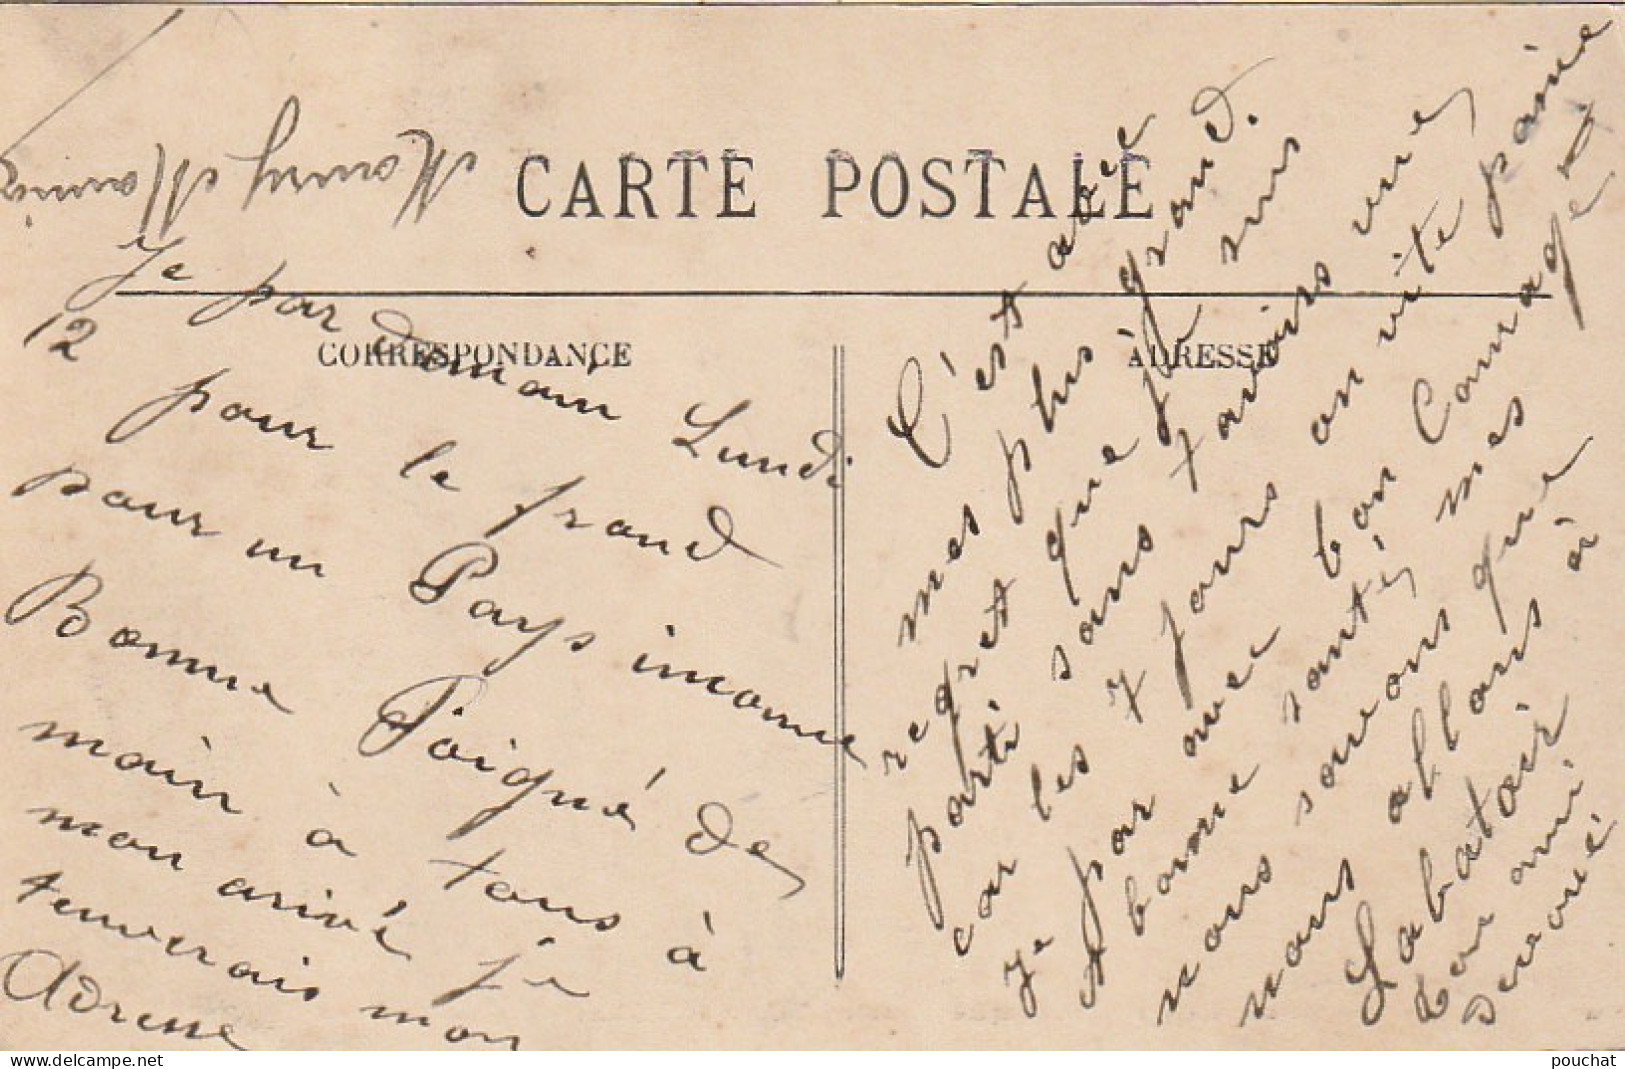 CARTE POSTALE
CORRESPONDANCE
ADRESSE
Je par demain Lundi
12 pour le frond
pour un Pays inconue
Bonne Poigné de
main à tous à
mon arivé je
tenverais mon
Adresse
C'est avec
mes plus grand.
regret que je suis
parti sans tavoirs vue,
car les 7 jours on vite passé
Je par avec bon Courage et
A bonne santé, mes que
nous savons que
nous allons à
Labatoir
Ton ami
Devoué
Maury Marius
delcampe.net
pouchat